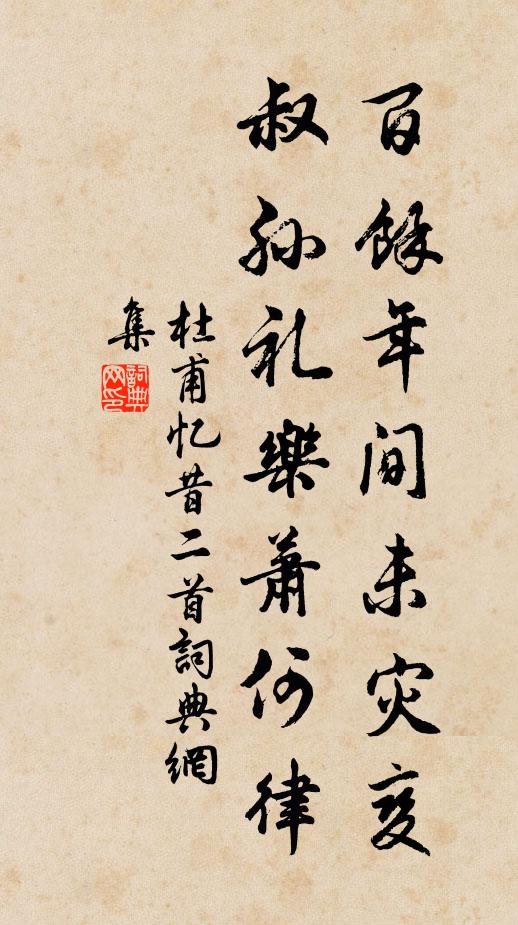 百餘年間未灾变
叔孙礼樂蕭何律
杜甫忆昔二首詞典網
集
詞典
网印